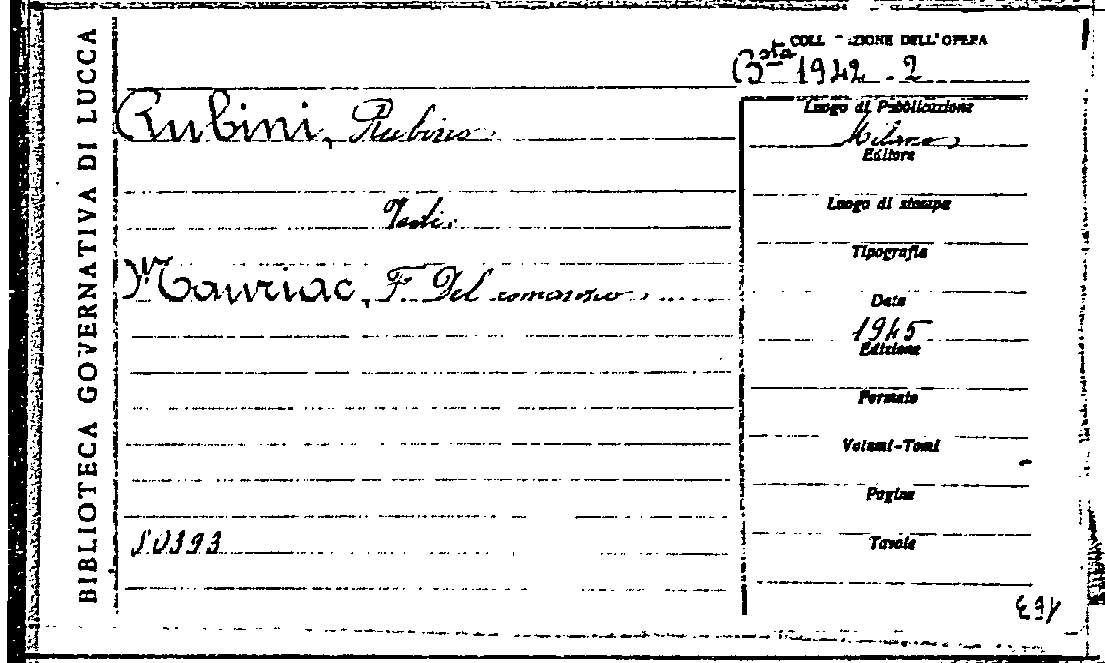 BIBLIOTECA GOVERNATIVA DI LUCCA
DELL'OPERA
Bta 1942 . 2
Rubini, Rubino.
Luogo di Pubblicazione
Milano
Editore
Luogo di stampa
Tipografia
Mauriac, F. Del romanzo.
Data
1945
Edizione
Formato
Volumi-Tomi
Pagine
Tavole
50393